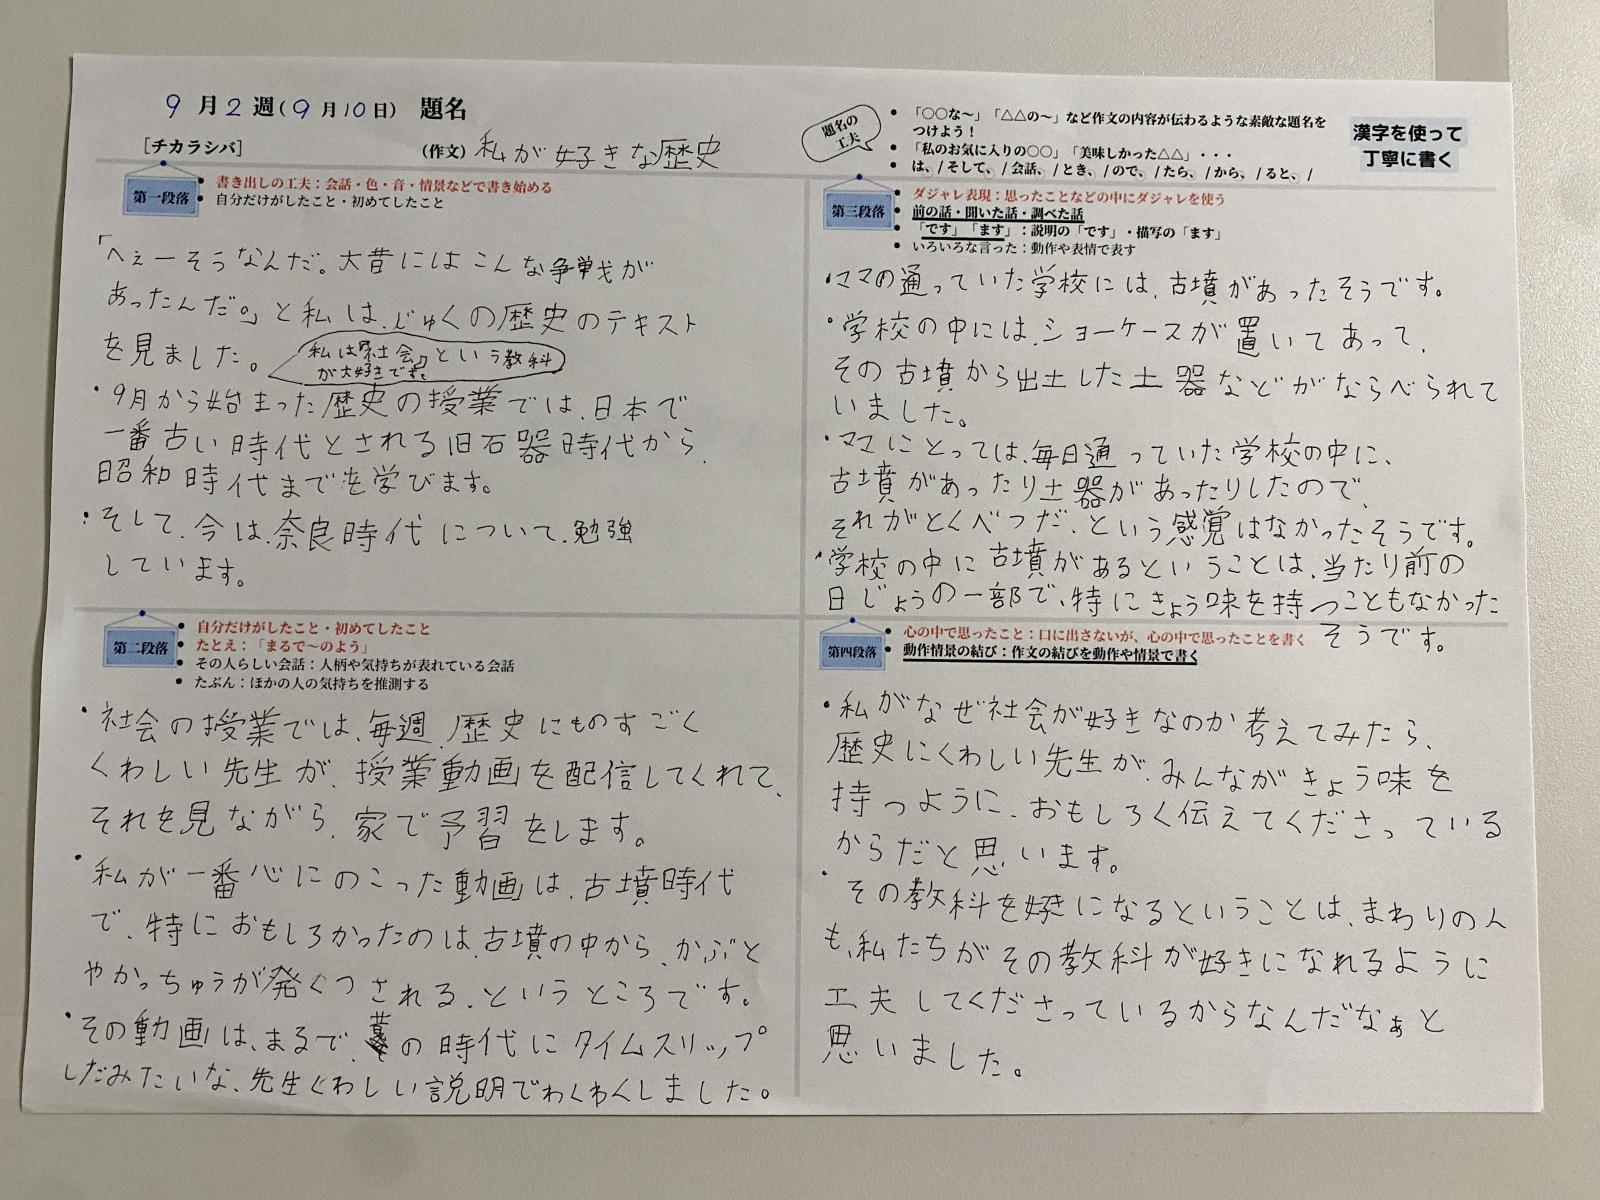 9月2週(9月10日) 題名
[チカラシバ]
(作文) 私が好きな歴史
題名の
工夫
• 「○○な～」「△△の～」など作文の内容が伝わるような素敵な題名を
つけよう！
• 「私のお気に入りの○○」「美味しかった△△」・・・
• は、/ そして、/ 会話、/ とき、/ ので、/ たら、/ から、/ ると、/
漢字を使って
丁寧に書く
第一段落
• 書き出しの工夫：会話・色・音・情景などで書き始める
• 自分だけがしたこと・初めてしたこと
「へぇーそうなんだ。大昔にはこんな争戦が
あったんだ。」と私は、じゅくの歴史のテキスト
を見ました。
私は『社会』という教科
が大好きです。
・9月から始まった歴史の授業では、日本で
一番古い時代とされる旧石器時代から、
昭和時代までを学びます。
・そして、今は、奈良時代について、勉強
しています。
第二段落
• 自分だけがしたこと・初めてしたこと
• たとえ：「まるで～のよう」
• その人らしい会話：人柄や気持ちが表れている会話
• たぶん：ほかの人の気持ちを推測する
・社会の授業では、毎週、歴史にものすごく
くわしい先生が、授業動画を配信してくれて、
それを見ながら、家で予習をします。
・私が一番心にのこった動画は、古墳時代
で、特におもしろかったのは、古墳の中から、かぶと
やかっちゅうが発くつされる、というところです。
・その動画は、まるで、その時代にタイムスリップ
しだみたいな、先生くわしい説明でわくわくしました。
第三段落
• ダジャレ表現：思ったことなどの中にダジャレを使う
• 前の話・聞いた話・調べた話
• 「です」「ます」：説明の「です」・描写の「ます」
• いろいろな言った：動作や表情で表す
・ママの通っていた学校には、古墳があったそうです。
・学校の中には、ショーケースが置いてあって、
その古墳から出土した土器などがならべられて
いました。
・ママにとっては、毎日通っていた学校の中に、
古墳があったり土器があったりしたので、
それがとくべつだ、という感覚はなかったそうです。
・学校の中に古墳があるということは、当たり前の
日じょうの一部で、特にきょう味を持つこともなかった
そうです。
第四段落
• 心の中で思ったこと：口に出さないが、心の中で思ったことを書く
• 動作情景の結び：作文の結びを動作や情景で書く
・私がなぜ社会が好きなのか考えてみたら、
歴史にくわしい先生が、みんながきょう味を
持つように、おもしろく伝えてくださっている
からだと思います。
・その教科を好きになるということは、まわりの人
も、私たちがその教科が好きになれるように
工夫してくださっているからなんだなぁと
思いました。